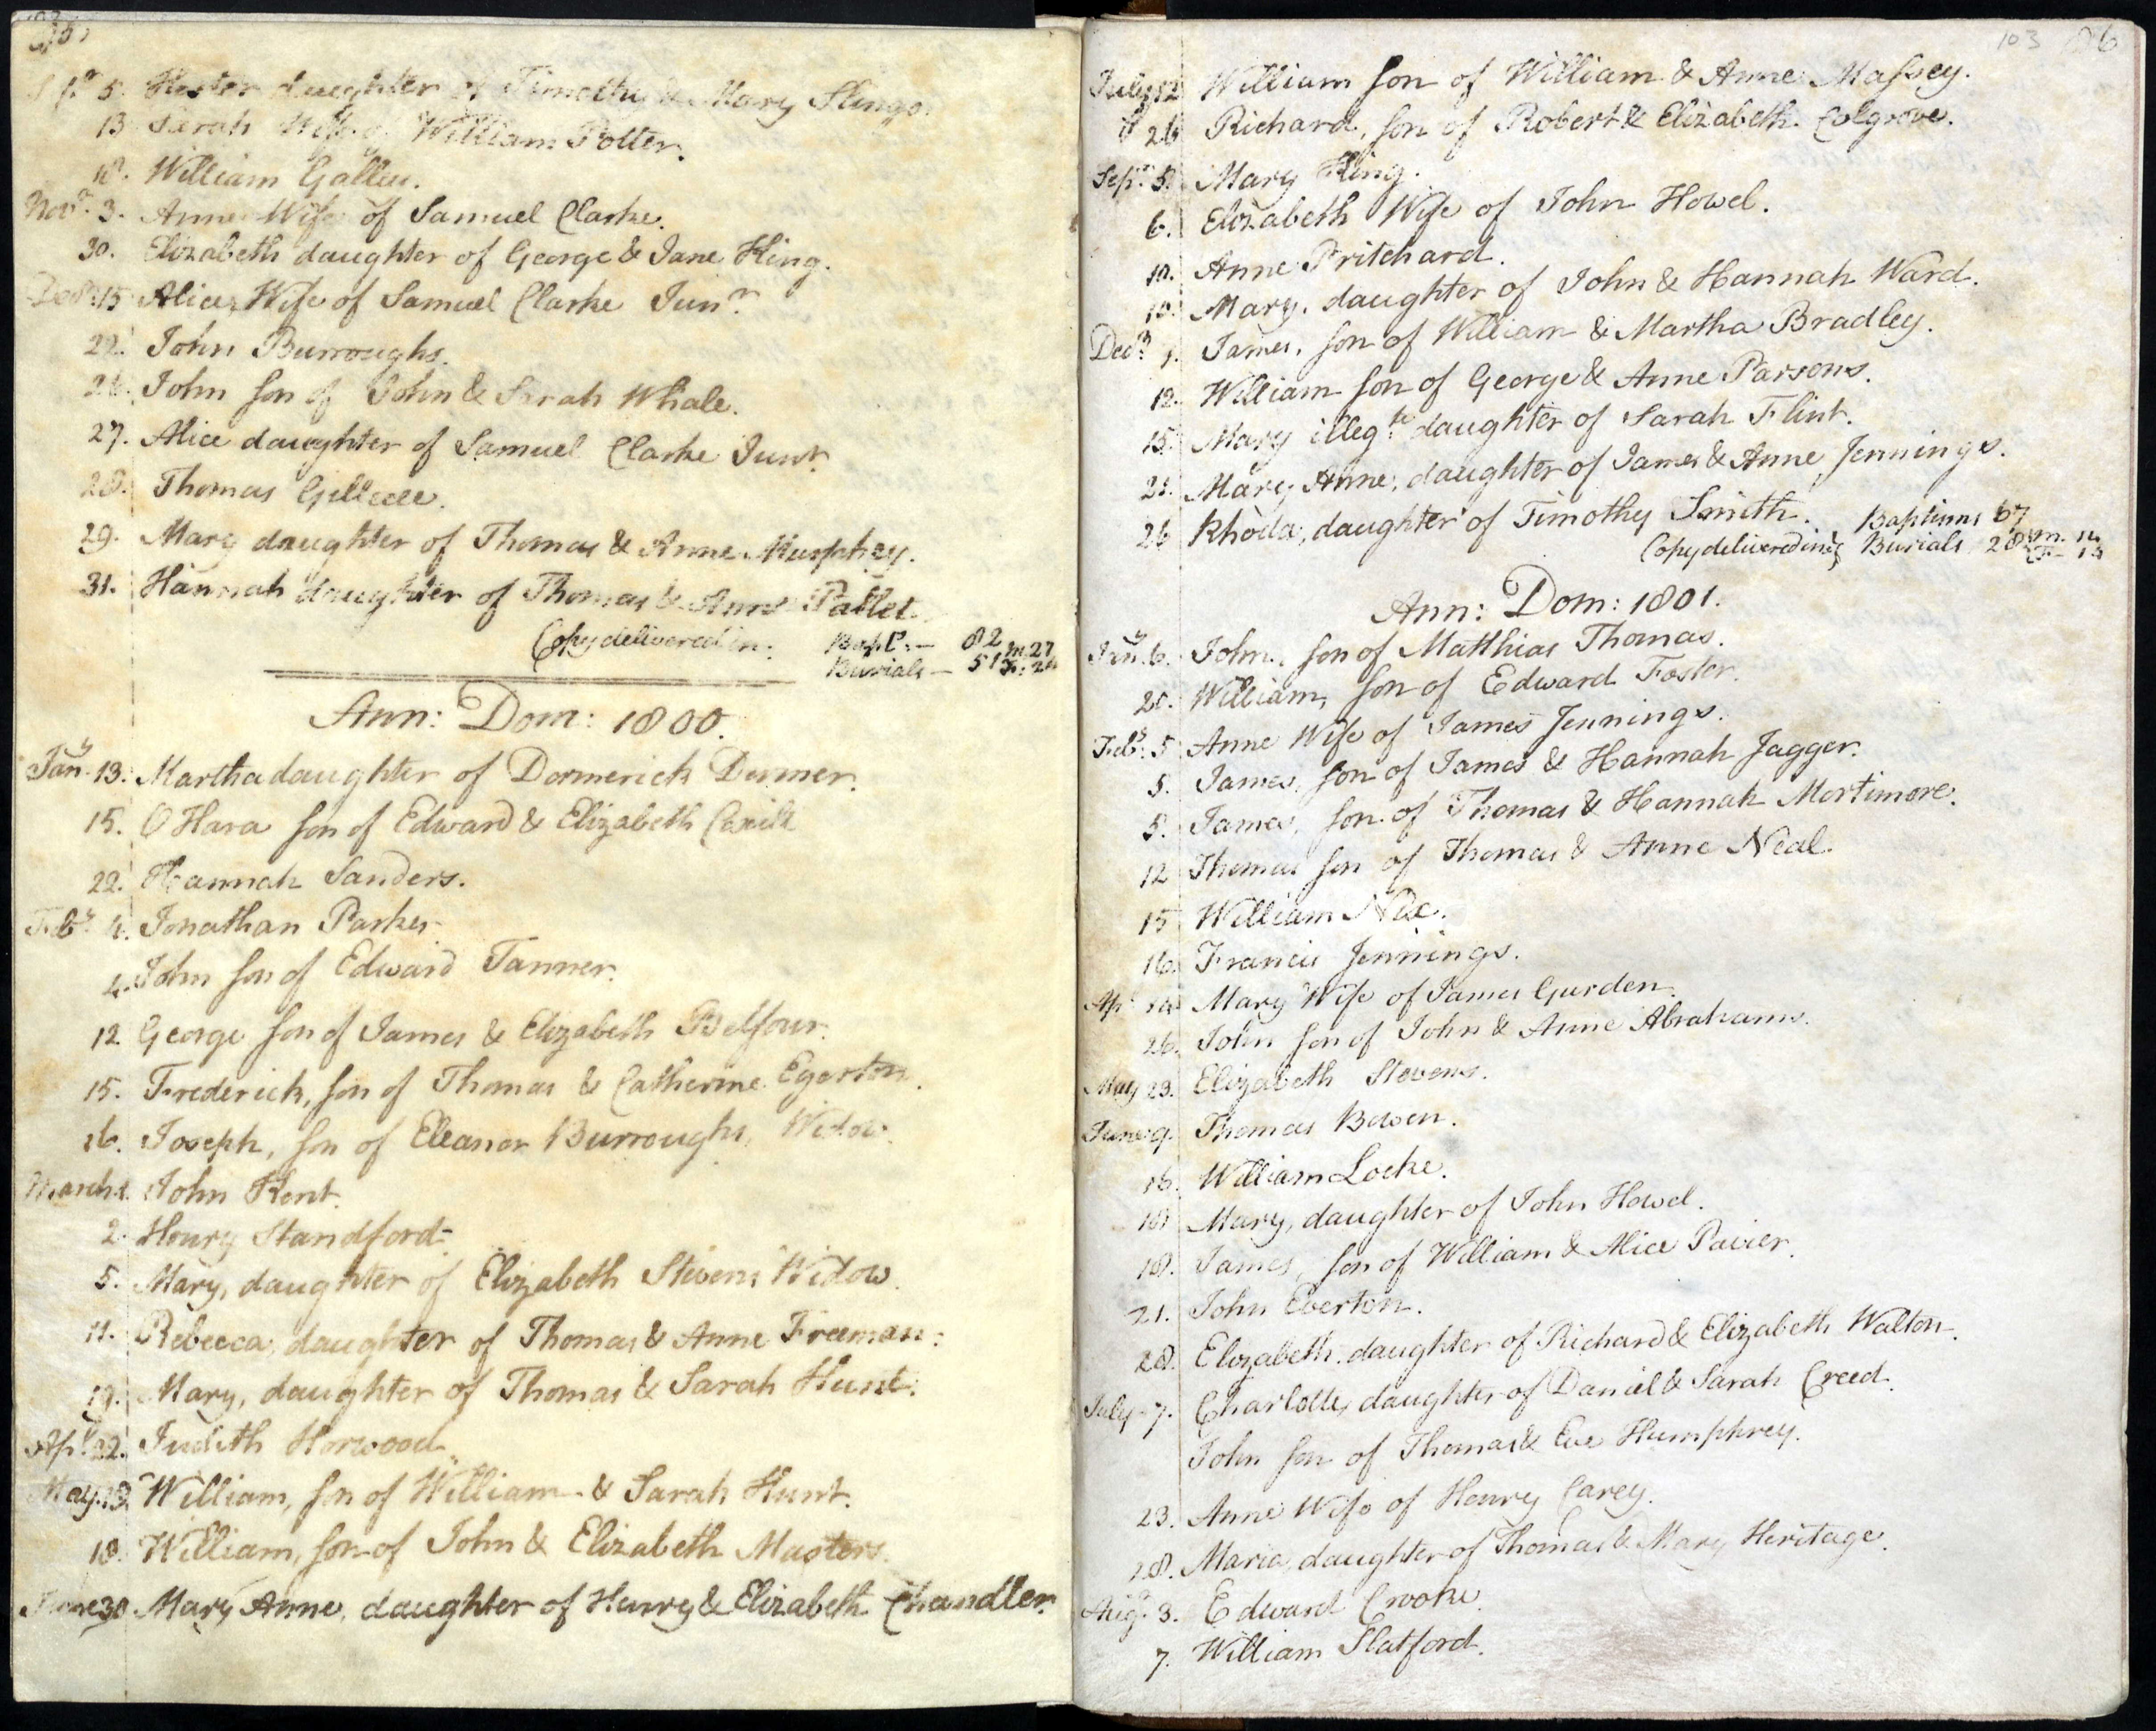 Sepr. 5. Hester daughter of Timothy & Mary Slingo.
13 Sarah Wife of William Potter.
18. William Galley.
Novr. 3. Anne Wife of Samuel Clarke.
30. Elizabeth daughter of George & Jane King.
Decr. 15 Alice, Wife of Samuel Clarke Junr
22. John Burroughs.
26. John son of John & Sarah Whale.
27. Alice daughter of Samuel Clarke Junr
28. Thomas
29. Mary daughter of Thomas & Anne Humphrey.
31. Hannah daughter of Thomas & Anne Pallet.
Copy delivered in. Bapt. — 82
Burials — 51 M. 27 F. 24
Ann: Dom: 1800.
Jany. 13. Martha daughter of Dormerick Dunner.
15. O Hara son of Edward & Elizabeth
22. Hannah Sanders.
Feby. 4. Jonathan Parker
4. John son of Edward Tanner.
12 George son of James & Elizabeth Belfour.
15. Frederick, son of Thomas & Catherine Egerton.
16. Joseph, son of Eleanor Burroughs, Widow.
March 1. John Kent.
2. Henry Standford.
5. Mary, daughter of Elizabeth Stevens Widow.
11. Rebecca, daughter of Thomas & Anne Freeman.
19. Mary, daughter of Thomas & Sarah Hunt.
Apl. 22. Judith Horwood.
May. 13 William, son of William & Sarah Hunt.
18. William, son of John & Elizabeth Masters.
June 30 Mary Anne, daughter of Henry & Elizabeth Chandler.
103
July 12 William son of William & Anne Massey.
26 Richard, son of Robert & Elizabeth Colgrove.
Sepr. 5. Mary King.
6. Elizabeth Wife of John Howel.
10. Anne Pritchard.
Mary, daughter of John & Hannah Ward.
Decr. 1. James, son of William & Martha Bradley.
12. William son of George & Anne Parsons.
15. Mary illegte daughter of Sarah Flint.
21. Mary Anne, daughter of James & Anne Jennings.
26 Rhoda, daughter of Timothy Smith. Baptisms 67
Copy delivered in Burials 28
Ann: Dom: 1801.
Jany. 6. John, son of Matthias Thomas.
20. William, son of Edward Foster.
Feby. 5 Anne Wife of James Jennings.
5. James, son of James & Hannah Jagger.
5. James, son of Thomas & Hannah Mortimore.
12 Thomas son of Thomas & Anne Neal.
15 William
16. Francis Jennings.
Apl 14 Mary Wife of James Gurden.
26. John son of John & Anne Abrahams.
May 23. Elizabeth Stevens.
June 9. Thomas Bowen.
16. William Locke.
18 Mary, daughter of John Howel.
18. James, son of William & Alice Pavier.
21. John Everton.
28. Elizabeth daughter of Richard & Elizabeth Walton.
July 7. Charlotte, daughter of Daniel & Sarah Creed.
John son of Thomas & Eve Humphrey.
23. Anne Wife of Henry Carey.
28. Maria, daughter of Thomas & Mary Heritage.
Augt. 3. Edward Crooke.
7. William Slatford.